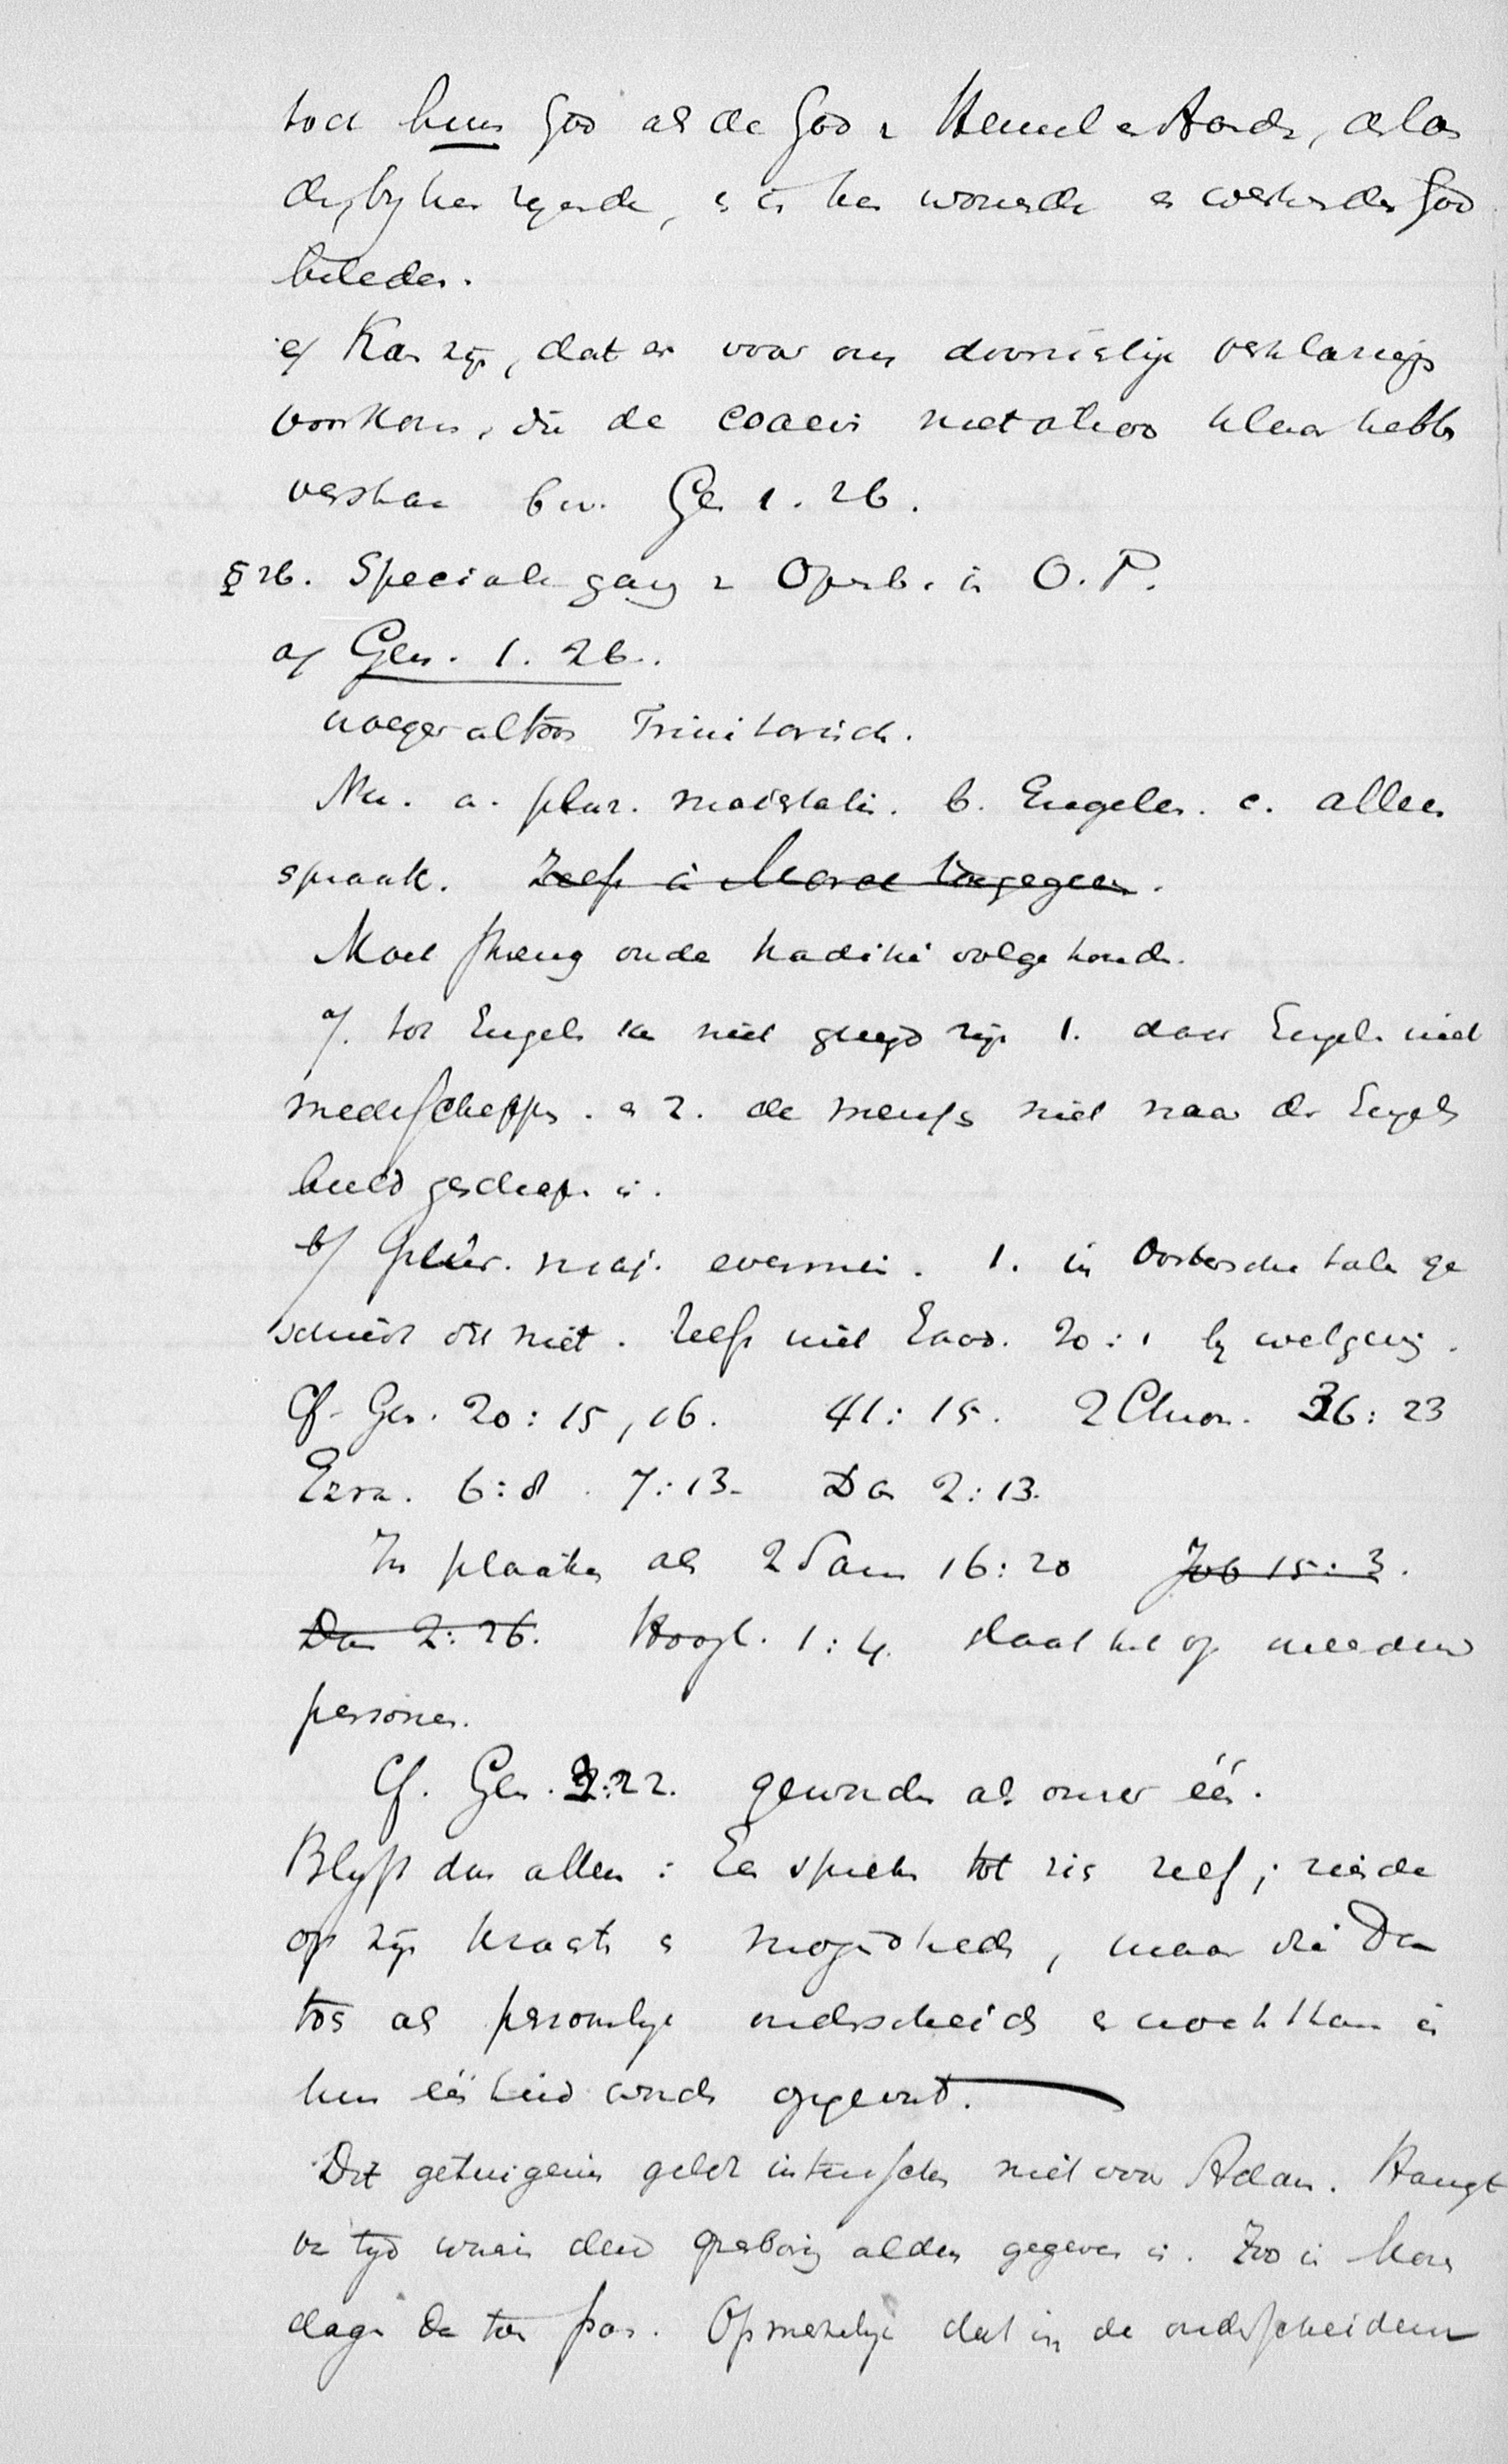 toch hun God als de God v Hemel e Aarde, als
bij hen zijnde, e i hen wonende e werkende God
beleden.
e/ Kan zijn, dat er voor ons
voorkom, die de coaevi niet altoos klaar hebb
verstaan bv. Ge 1. 26.
§ 26. Speciale gang v Openb. in O.T.
a/ Gen. 1. 26.
vroeger altoos Trinitarisch.
Nu. a. plur. maiestatis. b. Engelen. c. alleen
spraak. Zelfs
Moet streng oude traditie volgehoud.
a/. tot Engele ka niet gezegd zijn 1. daar Engele niet
medescheppers. e 2. de mensch niet naar der Engele
beeld geschape is.
b/ Plur. maj. evenmin. 1. in Oostersche tale ge
schiedt dit niet. Zelfs niet Exod. 20:1 bij wetgevig.
Cf. Gen. 20:15, 16. 41:15. 2 Chron. 36:23
Ezra. 6:8. 7:13. Da 2:13.
In plaatse als 2 Sam 16:20 Job 15:3.
Dan 2:26. Hoogl. 1:4. slaat het op meerdere
personen.
Cf. Gen. 3:22. geworden als onzer één.
Blijft dus alleen: Een spreken tot zich zelf; ziende
op zijn kracht e mogendhede, maar die Dan
toe als persoonlijk onderscheide e nochthans i
hun eenheid worde opgevat.
Dit getuigenis geldt intusschen niet voor Adam. Hangt
va tijd wnr dew openbarig alden gegeven is. Zoo i Mozes
dage Da toe pas. Opmerkelijk dat in de onderscheidene